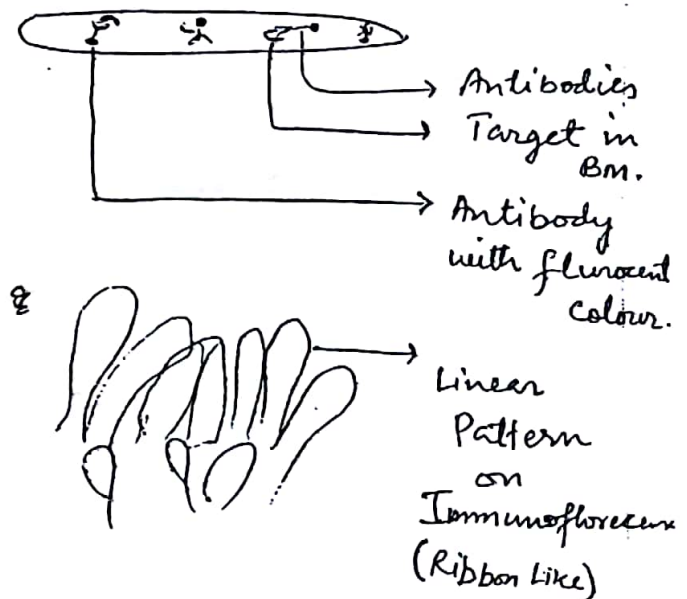 Antibodies
Target in
BM.
Antibody
with flurocent
Colour.
Linear
Pattern
on
Immunoflorecence
(Ribbon Like)